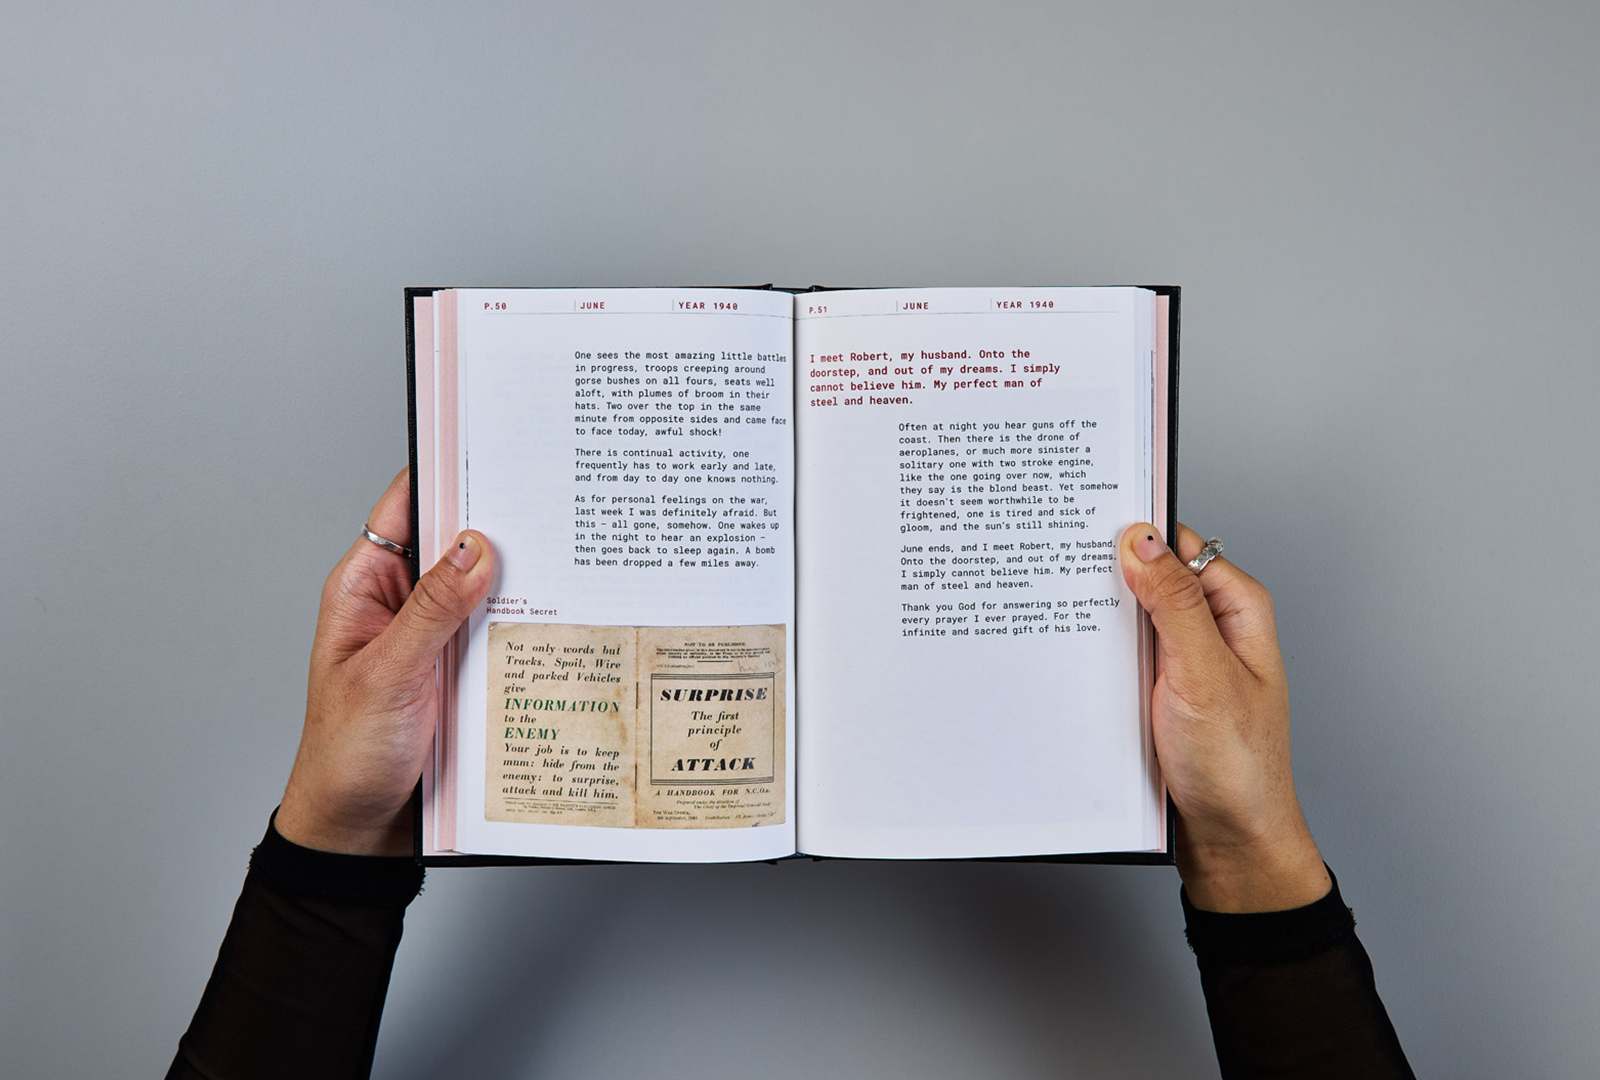 P.50 JUNE YEAR 1940
One sees the most amazing little battles
in progress, troops creeping around
gorse bushes on all fours, seats well
aloft, with plumes of broom in their
hats. Two over the top in the same
minute from opposite sides and came face
to face today, awful shock!
There is continual activity, one
frequently has to work early and late,
and from day to day one knows nothing.
As for personal feelings on the war,
last week I was definitely afraid. But
this – all gone, somehow. One wakes up
in the night to hear an explosion –
then goes back to sleep again. A bomb
has been dropped a few miles away.
Soldier's
Handbook Secret
Not only words but
Tracks, Spoil, Wire
and parked Vehicles
give
INFORMATION
to the
ENEMY
Your job is to keep
mum: hide from the
enemy: to surprise,
attack and kill him.
NOT TO BE PUBLISHED
SURPRISE
The first
principle
of
ATTACK
A HANDBOOK FOR N.C.Os.
Prepared under the direction of
The Chief of the Imperial General Staff
P.51 JUNE YEAR 1940
I meet Robert, my husband. Onto the
doorstep, and out of my dreams. I simply
cannot believe him. My perfect man of
steel and heaven.
Often at night you hear guns off the
coast. Then there is the drone of
aeroplanes, or much more sinister a
solitary one with two stroke engine,
like the one going over now, which
they say is the blond beast. Yet somehow
it doesn't seem worthwhile to be
frightened, one is tired and sick of
gloom, and the sun's still shining.
June ends, and I meet Robert, my husband.
Onto the doorstep, and out of my dreams.
I simply cannot believe him. My perfect
man of steel and heaven.
Thank you God for answering so perfectly
every prayer I ever prayed. For the
infinite and sacred gift of his love.